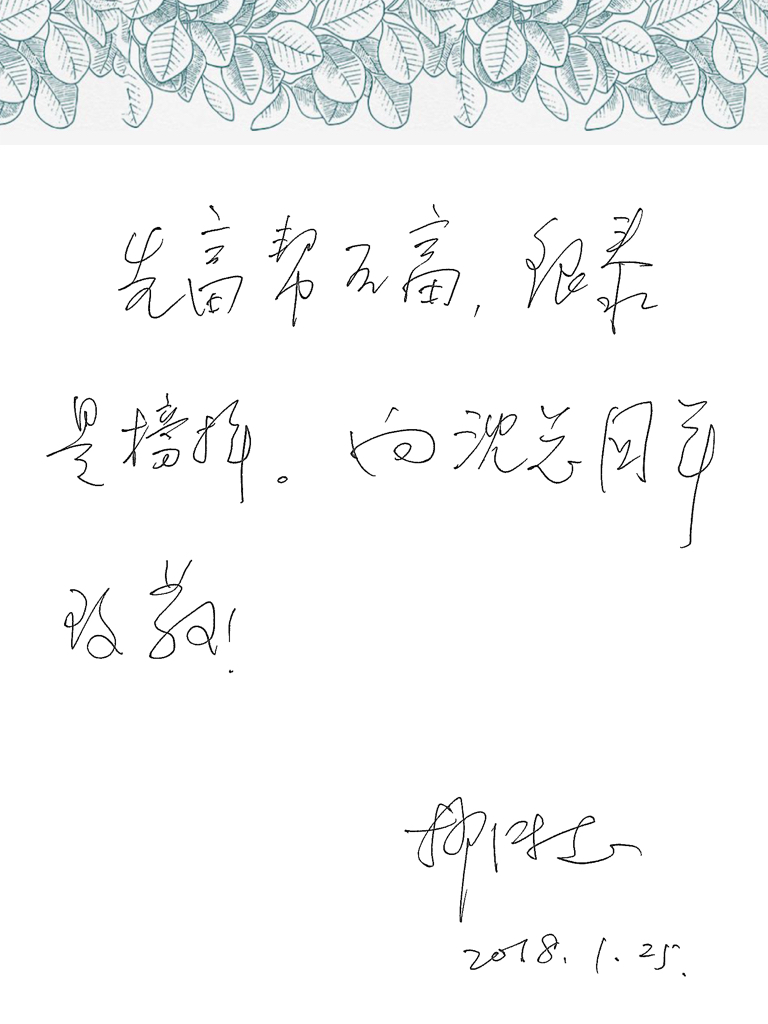 先富帮后富，银泰
是榜样。向沈总国军
致敬！
柳传志
2018.1.25.